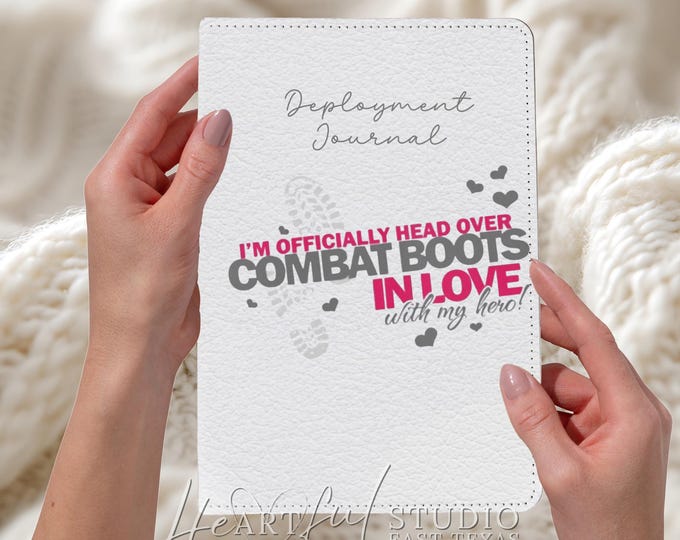 Deployment
Journal
I'M OFFICIALLY HEAD OVER
COMBAT BOOTS
IN LOVE
with my hero!
HeARTful STUDIO
EAST TEXAS